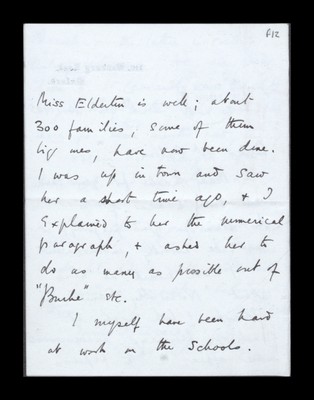 F12
Miss Elderton is well; about
300 families, some of them
big ones, have now been done.
I was up in town and saw
her a short time ago, & I
explained to her the numerical
paragraph, & asked her to
do as many as possible out of
"Burke" etc.
I myself have been hard
at work on the Schools.